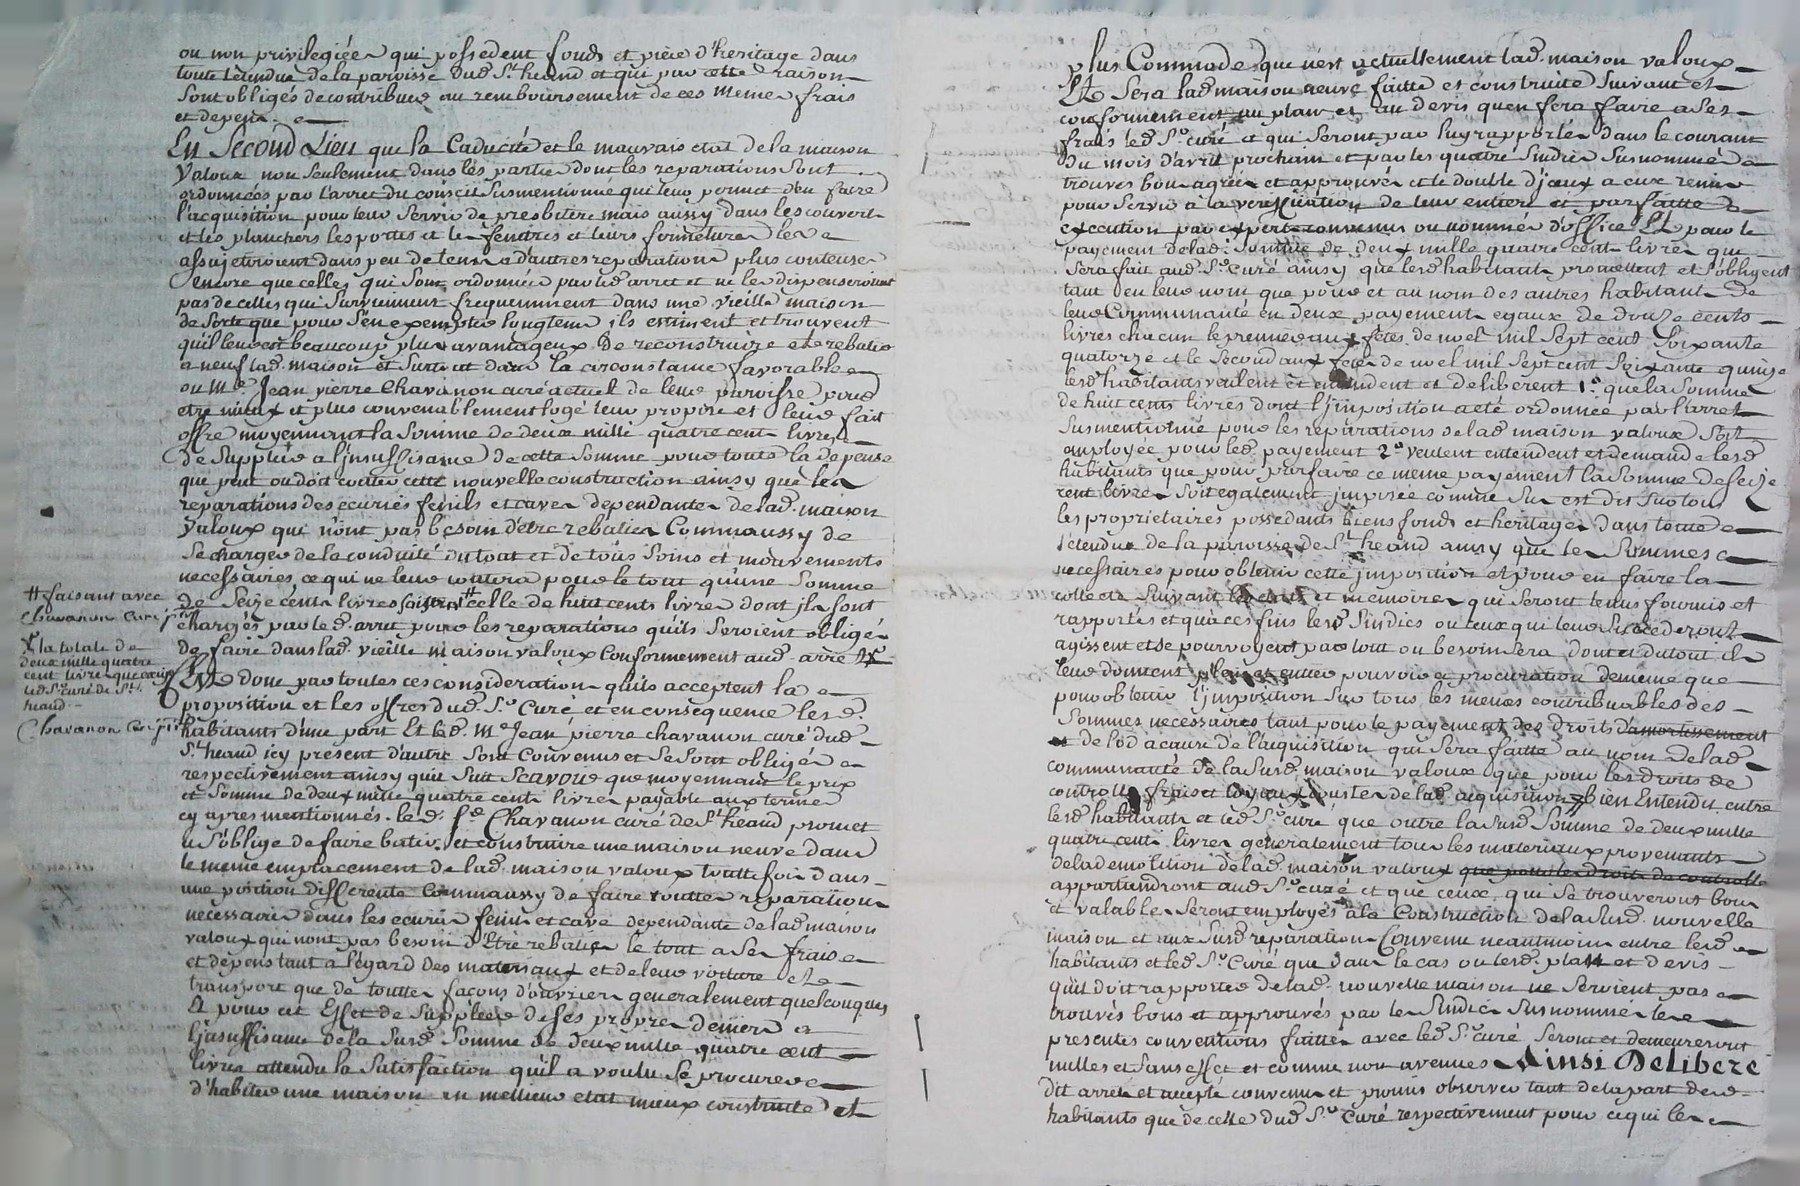 ou non privilegiées qui possedent fonds et piéce d'heritage dans
toute létendue de la paroisse dud. St. heand et qui par cette raison
sont obligés de contribuer au remboursement de ces memes frais
et depens.
En Sécond Lieu que la Caducité et le mauvais etat de la maison
Valoux non seulement dans les partie dont les reparations sont
ordonnées par l'arret du conseil susmentionné qui leur permet d'en faire
l'acquisition pour leur servir de presbitère mais aussy dans les couvert
et les planchers les portes et les fenetres et leurs fermetures les
assujettiroient dans peu de tems a d'autres reparations plus couteuses
encore que celles qui sont ordonnées par led arret et ne les dispenseroient
pas de celles qui surviennent frequemment dans une vieille maison
de sorte que pour s'en exempter longtems ils estiment et trouvent
quil leur est beaucoup plus avantageux de reconstruire et rebatir
a neuf lad. maison et surtout dans la circonstance favorable
ou Me. Jean pierre Chavanon curé actuel de leur paroisse pour
etre mieux et plus convenablement logé leur propose et leur fait
offre moyennant la somme de deux mille quatre cent livres
de supplér a l'insuffisance de cette somme pour toute la depense
que peut ou doit couter cette nouvelle construction ainsy que les
reparations des ecuries fenils et caves dependantes de lad. maison
Valoux qui n'ont pas besoin d'etre rebaties Commaussy de
se charger de la conduitte du tout et de tous soins et mouvements
necessaires, ce qui ne leur coutera pour le tout qu'une somme
# faisant avec
de Seize cents livres # celle de huit cents livres dont ils sont
Chavanon curé
chargés par led. arret pour les reparations qu'ils seroient obligés
de faire dans lad. vieille maison valoux conformement aud. arret
la totale de
deux mille quatre
cent livres que
led Sr. curé de St.
heand
Chavanon curé
Et donc par toutes ces considerations qu'ils acceptent la
proposition et les offres dud. Sr. Curé et en consequence lesd.
habitants d'une part Et led. Me Jean pierre chavanon curé dud
St. heand icy present d'autre sont Convenus et se sont obligés
respectivement ainsy quil suit Scavoir que moyennant le prix
et somme de deux mille quatre cent livres payable aux termes
cy apres mentionnés. led. Sr. Chavanon curé de St. heand promet
et s'oblige de faire batir et construire une maison neuve dans
le meme emplacement de lad. maison valoux toutte fois dans
une position differente commaussy de faire touttes reparations
necessaires dans les ecuries fenils et cave dependante de lad maison
valoux qui n'ont pas besoin d'Etre rebaties le tout a ses frais
et depens tant a l'égard des materiaux et de leur voiture et
transport que de touttes façons d'ouvriers generalement quelconques
Et pour cet Effet de suppléer de ses propres deniers a
l'insuffisance de la susd. somme de deux mille quatre cent
livres attendu la satisfaction qu'il a voulu se procurer
d'habiter une maison en meilleur etat mieux construite et
plus Commode que n'est actuellement lad. maison valoux
Et sera lad maison neuve faitte et construite suivant et
conformement au plan et au devis qu'en fera faire a ses
frais led Sr. curé et qui seront par luy rapportés dans le courant
du mois d'avril prochain et par les quatre sindics susnommés
trouvés bon agréés et approuvés et le double d'iceux a eux remis
pour servir à la verification de leur entiere et parfaitte
execution par experts convenus ou nommés d'office Et pour le
payement de lad. somme de deux mille quatre cent livres qui
sera fait aud. Sr. curé ainsy que lesd habitants promettent et s'obligent
tant en leur nom que pour et au nom des autres habitants de
leur Communauté en deux payements egaux de douze cents
livres chacun le premier aux fetes de noel mil sept cent soixante
quatorze et le second aux fetes de noel mil sept cent soixante quinze
lesd habitants veulent et entendent et deliberent 1°. que la somme
de huit cents livres dont l'jmposition a eté ordonnée par l'arret
susmentionné pour les reparations de lad maison valoux soit
employée pour led. payement 2°. veulent entendent et demande lesd
habitants que pour parfaire ce meme payement la somme de seize
cent livres soit egalement jmposée comme sus est dit sur tous
les proprietaires possedants biens fonds et heritages dans toute
l'étendue de la paroisse de St. heand ainsy que les sommes
necessaires pour obtenir cette jmposition et pour en faire la
collecte suivant les etats et memoires qui seront tenus fournis et
rapportés et qu'a ces fins lesd Sindics ou ceux qui leur succederont
agissent et se pourvoyent par tout ou besoin sera dont et du tout ils
leur donnent plein et entier pouvoir et procuration de meme que
pour obtenir l'jmposition sur tous les memes contribuables des
sommes necessaires tant pour le payement des droits d'amortissement
et de lod a cause de l'acquisition qui sera faitte au nom de lad
communauté de la susd. maison valoux que pour les droits de
controlle frais et loyaux couster de lad acquisition Bien Entendu entre
lesd habitants et led Sr. curé que outre la susd. somme de deux mille
quatre cent livres generalement tous les materiaux provenants
de la demolition de lad. maison valoux que pour les droits de controlle
appartiendront aud Sr. curé et que ceux qui se trouveront bons
et valables seront employés à la Construction de la susd. nouvelle
maison et aux susd reparations Convenu neantmoins entre lesd
habitants et led. Sr. Curé que dans le cas ou lesd. plan et devis
quil doit rapporter de lad. nouvelle maison ne seroient pas
trouvés bons et approuvés par les sindics susnommés les
presentes conventions faittes avec led Sr. curé seront et demeureront
nulles et sans effet et comme non avenues Ainsi Deliberé
dit arreté et accepté convenu et promis observer tant de la part desd
habitants que de celle dud Sr. Curé respectivement pour ce qui les